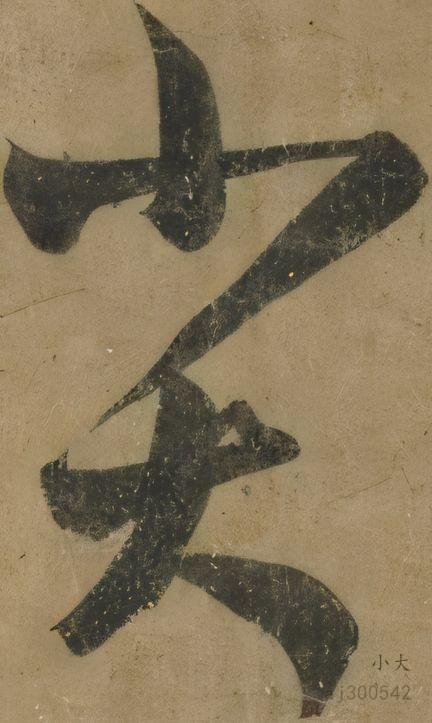 小大
小大
j300542